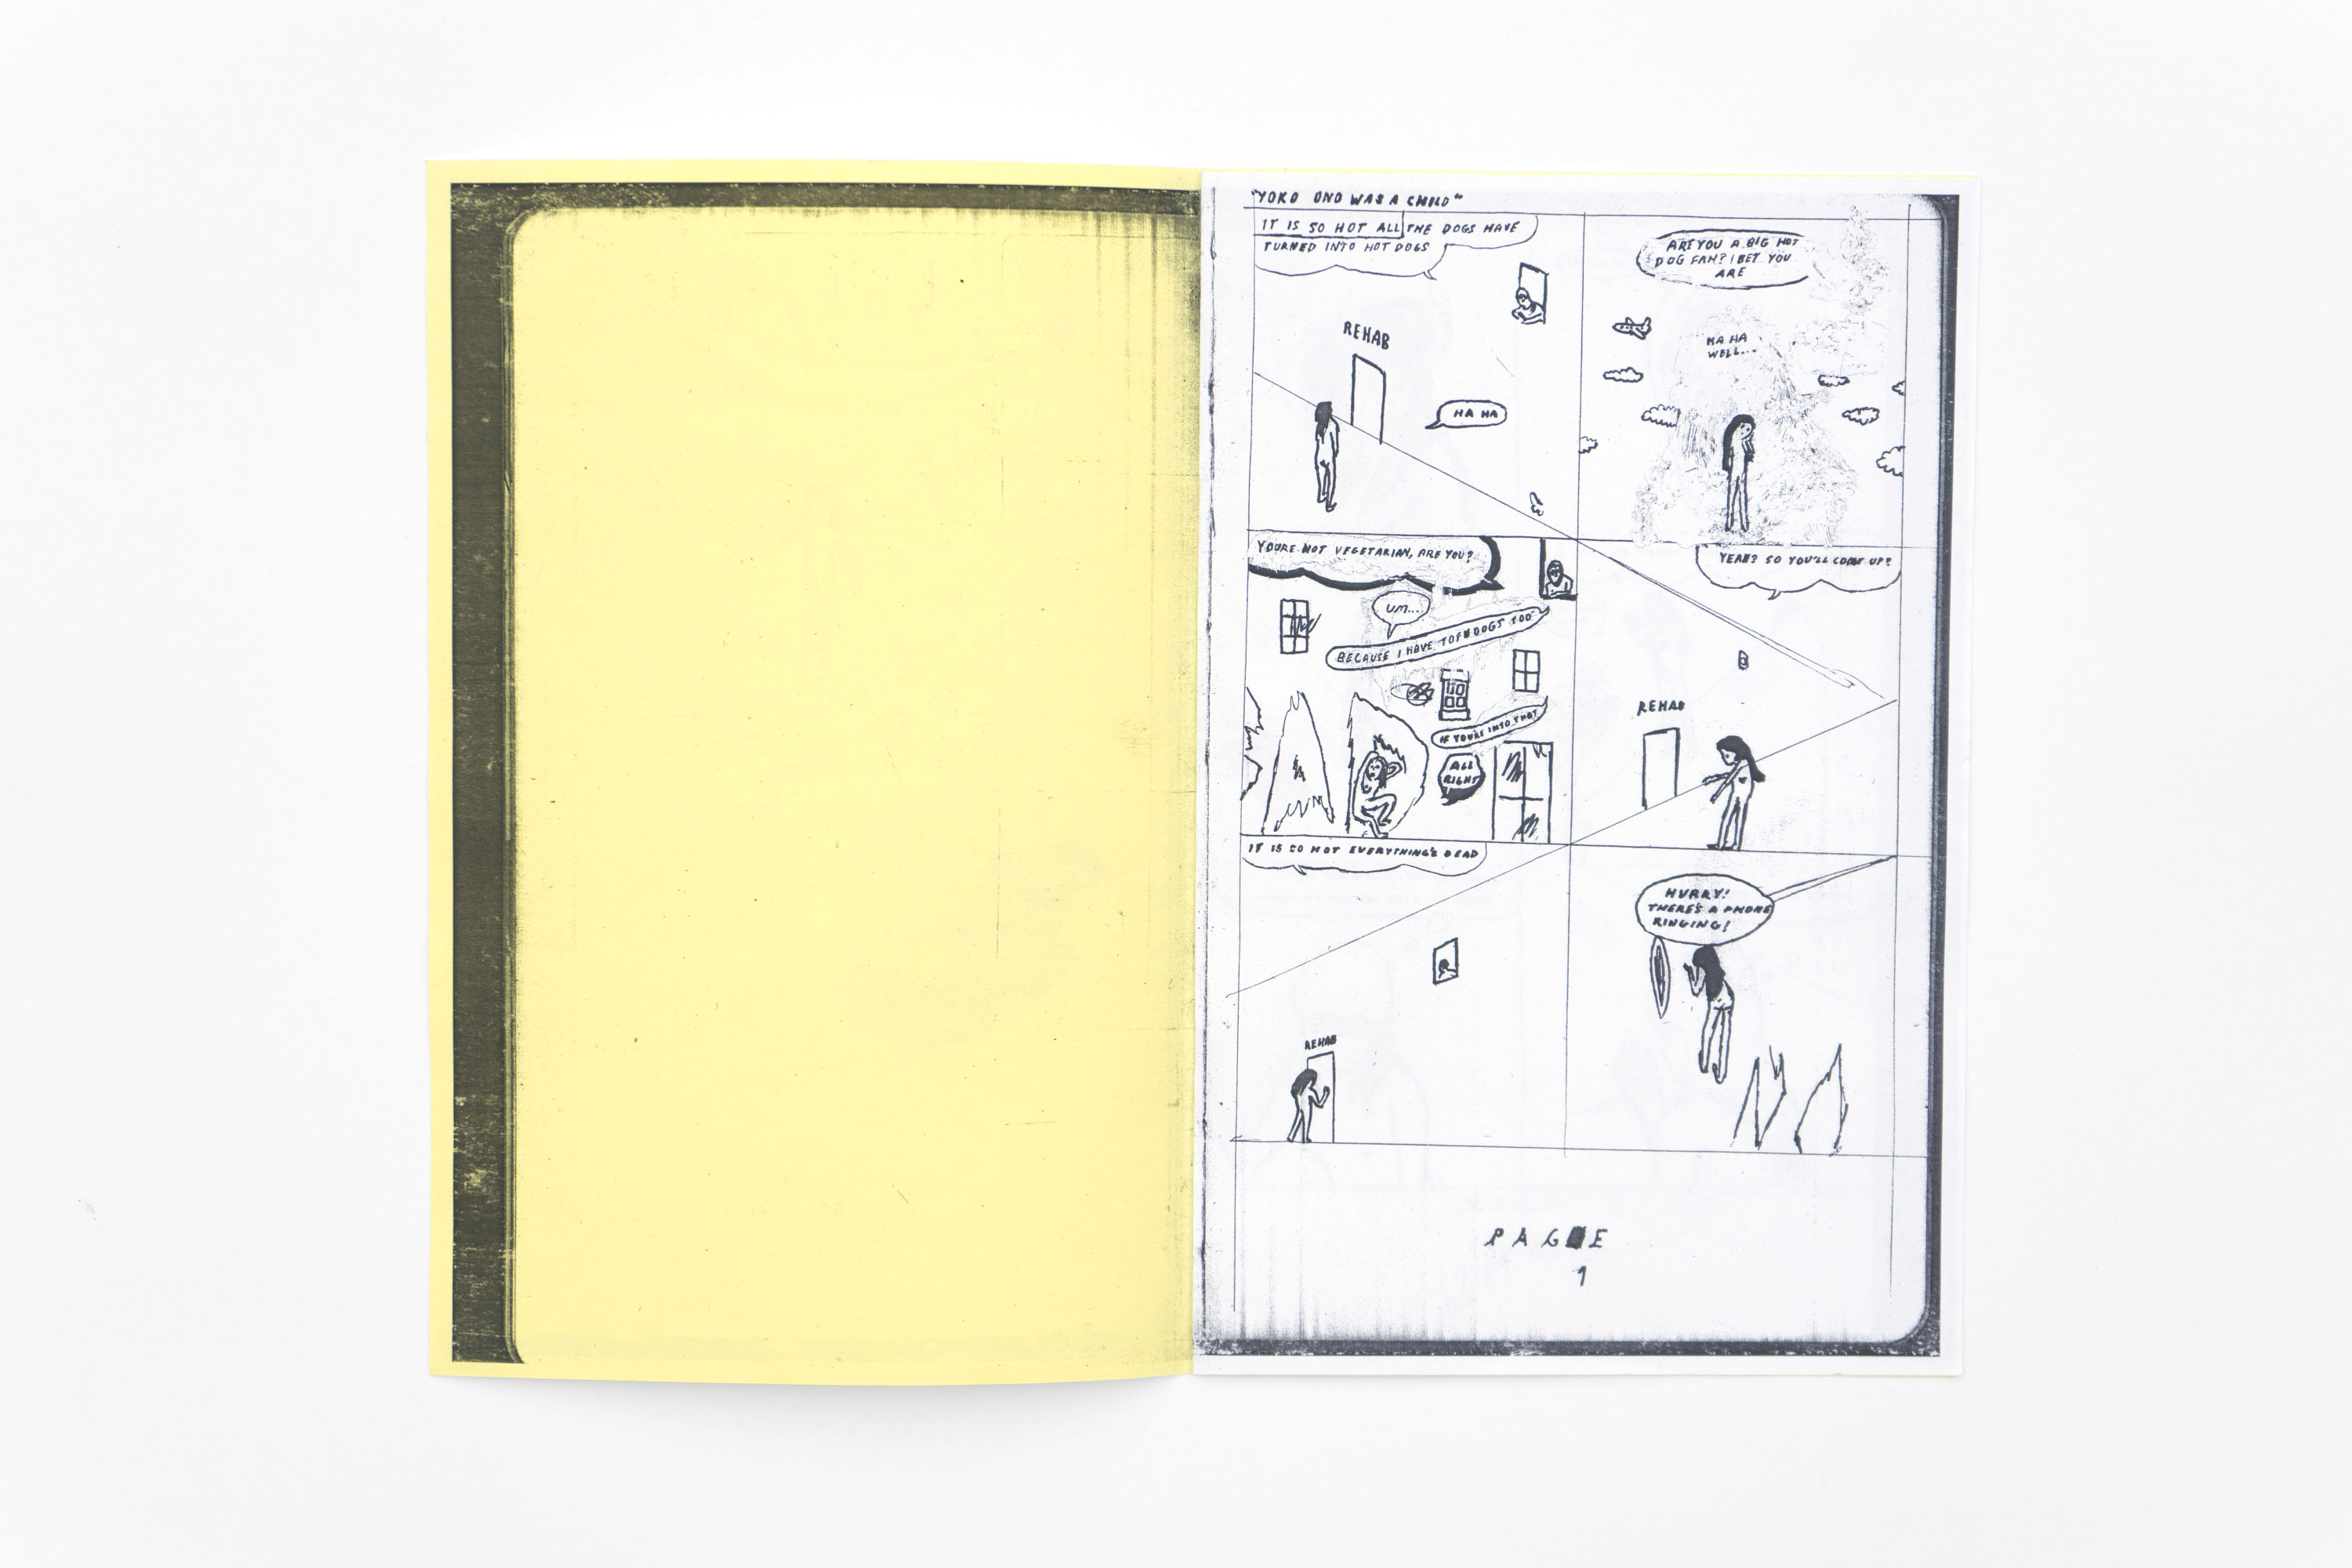 "YOKO ONO WAS A CHILD"
IT IS SO HOT ALL THE DOGS HAVE
TURNED INTO HOT DOGS
REHAB
HA HA
ARE YOU A BIG HOT
DOG FAN? I BET YOU
ARE
HA HA
WELL...
YOURE NOT VEGETARIAN, ARE YOU?
UM...
BECAUSE I HAVE TOFU DOGS TOO
IF YOURE INTO THAT
ALL
RIGHT
YEAH? SO YOU'LL COME UP?
REHAB
IT IS SO HOT EVERYTHING'S DEAD
REHAB
HURRY!
THERE'S A PHONE
RINGING!
PAGE
1